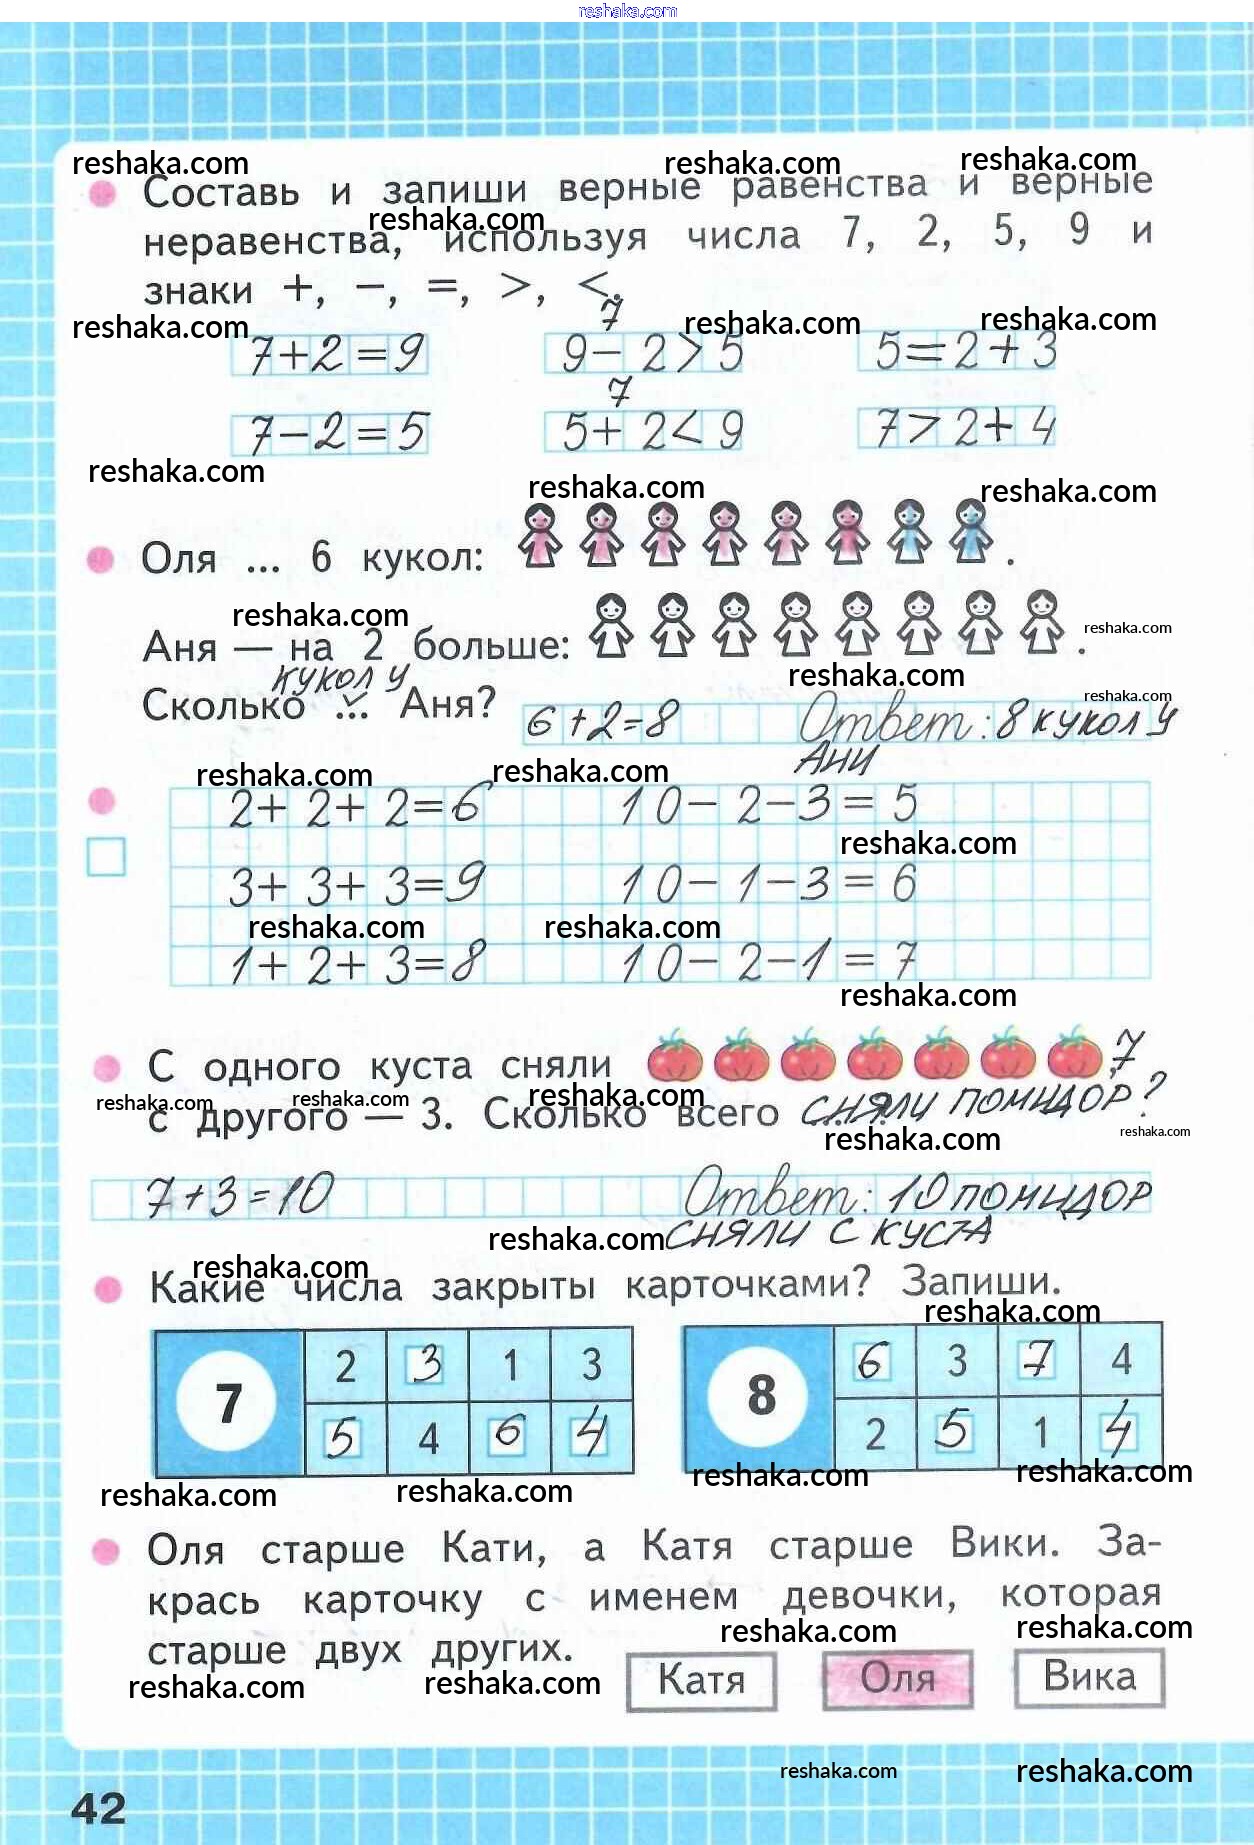 reshaka.com
reshaka.com reshaka.com reshaka.com
Составь и запиши верные равенства и верные
reshaka.com
неравенства, используя числа 7, 2, 5, 9 и
знаки +, −, =, >, <.
reshaka.com 7 reshaka.com reshaka.com
7+2=9 9−2>5 5=2+3
7
7−2=5 5+2<9 7>2+4
reshaka.com reshaka.com reshaka.com
Оля ... 6 кукол: .
reshaka.com
Аня — на 2 больше: . reshaka.com
кукол у reshaka.com reshaka.com
Сколько ... Аня? 6+2=8 Ответ: 8 кукол у
Ани
reshaka.com reshaka.com
2+2+2=6 10−2−3=5
reshaka.com
3+3+3=9 10−1−3=6
reshaka.com reshaka.com
1+2+3=8 10−2−1=7
reshaka.com
С одного куста сняли , 7
reshaka.com reshaka.com reshaka.com
с другого — 3. Сколько всего сняли помидор?
reshaka.com reshaka.com
7+3=10 Ответ: 10 помидор
reshaka.com сняли с куста
reshaka.com
Какие числа закрыты карточками? Запиши.
reshaka.com
2 3 1 3 6 3 7 4
7 8
5 4 6 4 2 5 1 4
reshaka.com reshaka.com reshaka.com reshaka.com
Оля старше Кати, а Катя старше Вики. За-
крась карточку с именем девочки, которая
reshaka.com reshaka.com
старше двух других.
Катя Оля Вика
reshaka.com reshaka.com
reshaka.com reshaka.com
42